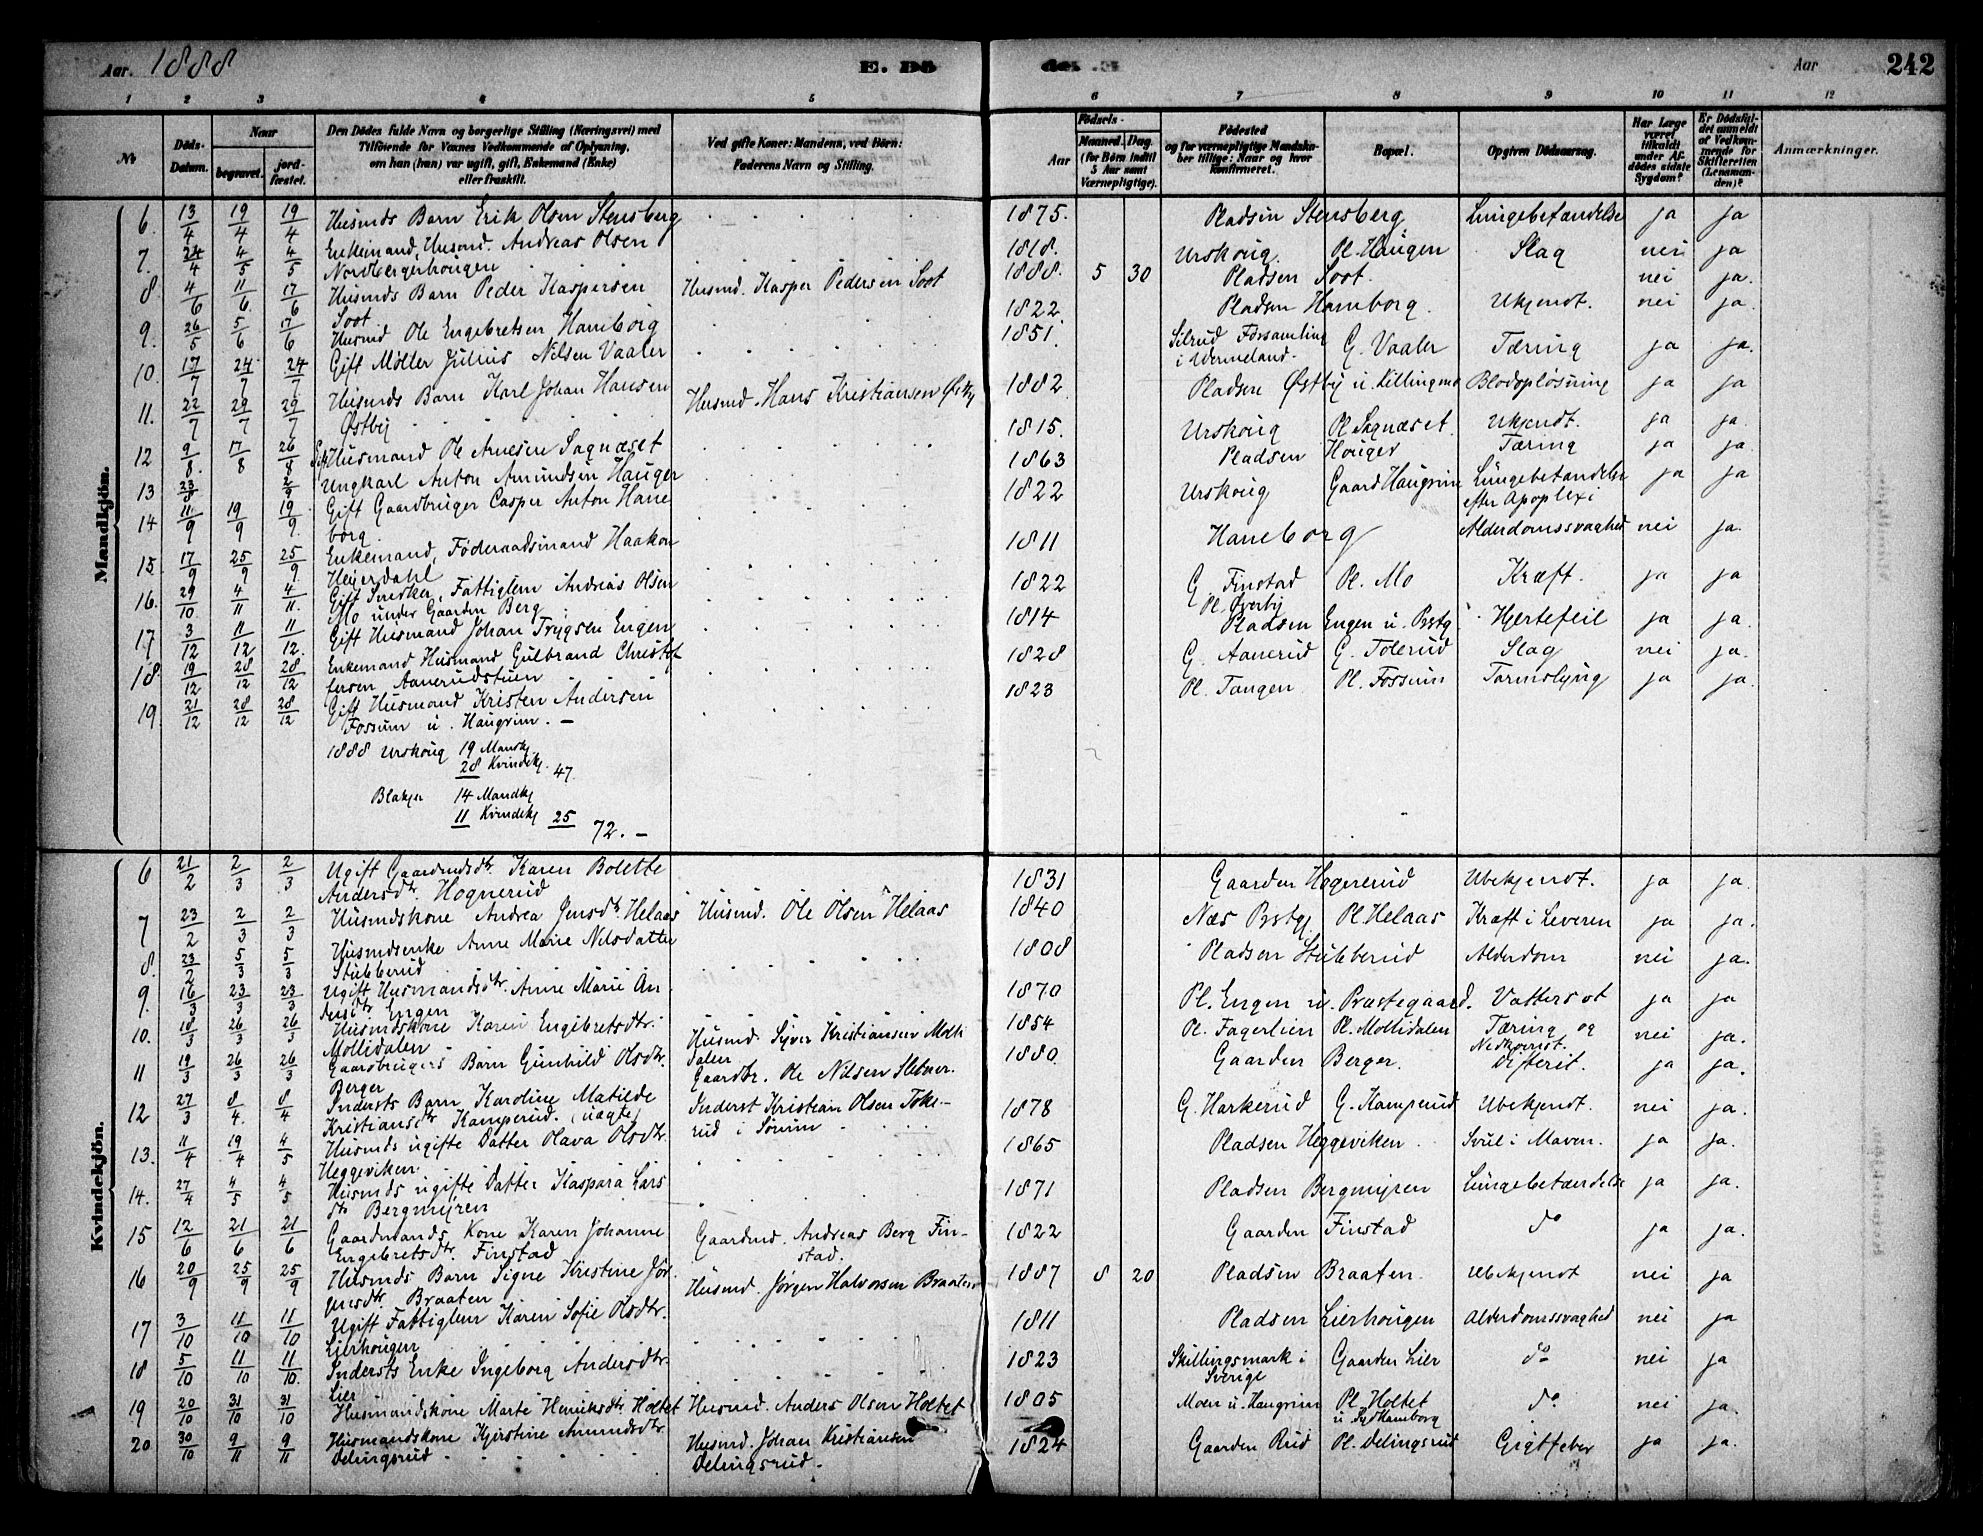 Aar. 1888
E. Dö de. E
Aar 242
1 2 3 4 5 6 7 8 9 10 11 12
No
Døds-Datum.
Naar
begravet.
jordfæstet.
Den Dødes fulde Navn og borgerlige Stilling (Næringsvei) med
Tilföiende for Voxnes Vedkommende af Oplysning,
om han (hun) var ugift, gift, Enkemand (Enke)
eller fraskilt.
Ved gifte Koner: Mandens, ved Börn:
Faderens Navn og Stilling.
Födsels-
Aar
Maaned. Dag.
(for Börn indtil
5 Aar samt
Værnepligtige).
Födested
og for værnepligtige Mandskaber tillige: Naar og hvor konfirmeret.
Bopæl.
Opgiven Dödsaarsag.
Har Læge været tilkaldt under Afdødes sidste Sygdom?
Er Dödsfaldet anmeldt af Vedkommende for Skifteretten (Lensmanden)?
Anmærkninger.
Mandkjön.
6. 13/4 19/4 19/4 Husmds Barn Erik Olsen Stensberg 1875. Pladsen Stensberg Lungebetændelse ja ja
7. 24/4 4/5 4/5 Enkemand, Husmd. Andreas Olsen 1818. Urskoug. Pl. Haugen Slag nei ja
Nordbergerhougen
8 4/6 11/6 17/6 Husmds Barn Peder Kaspersen Husmd. Kasper Pedersen Soot 1888. 5 30 Pladsen Soot. nei ja.
Soot.
9. 26/5 5/6 17/6 Husmd Ole Engebretsen Hamborg 1822 Pladsen Hamborg. Ukjendt. nei ja.
10. 17/7 24/7 24/7 Gift Møller Julius Nilsen Vaaler 1851. Silrud Forsamling i Wermeland. G. Vaaler Tæring ja ja.
11. 22/7 29/7 29/7 Husmds Barn Karl Johan Hansen Husmd. Hans Kristiansen Østby 1882 Pladsen Østby u. Killingmo Blodopløsning ja ja
Østby
12 9/8. 17/8 26/8 Gift Husmand Ole Arnesen Sagnæset 1815. Urskoug Pl. Sagnæset. Ukjendt. ja ja.
13 23/8 2/9 Ungkarl Anton Amundsen Hauger 1863 Pladsen Houger Tæring ja ja.
14 11/9 19/9 19/9. Gift Gaardbruger Casper Anton Hane 1822 Urskoug Gaard Haugrim Lungebetændelse efter Apoplexi ja ja
borg
15. 17/9 25/9 25/9 Enkemand, Föderaadsmand Haakon 1811 Haneborg Alderdomssvaghed nei ja.
Heyerdahl
16. 29/10 4/11 4/11. Gift Snedker, Fattiglem Andreas Olsen 1822 G. Finstad Pl. Mo Kræft. ja ja
Mo under Gaarden Berg.
17 3/12 11/12 11/12. Gift Husmand Johan Trygsen Engen 1814 Pl. Øverby Pladsen Engen u. Prstg. Hjertefeil ja ja.
18. 19/12 28/12 28/12 Enkemand Husmand Gulbrand Christof 1828 G. Aanerud G. Tolerud Slag nei ja.
fersen Aanerudstuen
19. 21/12 28/12 28/12 Gift Husmand Kristen Andersen 1823 Pl. Tangen Pl. Fossum Tarmslyng ja ja.
Fossum u. Haugrim. —
1888 Urskoug 19 Mandkj.
28 Kvindekj. 47.
Blakjer 14 Mandkj
11 Kvindekj 25
72. —
Kvindekjön.
6 21/2 2/3 2/3 Ugift Gaardmdsdtr. Karen Bolette 1831 Gaarden Hognerud Ubekjendt. ja ja.
Andersdtr. Hognerud
7 23/2 2/3 2/3 Husmdskone Andrea Jensdtr. Helaas Husmd. Ole Olsen Helaas 1840 Næs Prstgj. Pl. Helaas Kræft i Leveren ja ja.
8. 23/2 5/3 5/3 Husmdsenke Anne Marie Nilsdatter 1808 Pladsen Stubberud Alderdom nei ja.
Stubberud
9. 16/3 23/3 23/3 Ugift Husmandsdtr. Anne Marie An 1870 Pl. Engen u. Præstegaard. Vattersot ja ja
dersdtr. Engen
10. 18/3 26/3 26/3 Husmdskone Karen Engebretsdtr. Husmd. Syver Kristiansen Molli 1854 Pl. Fagerlien Pl. Mollidalen Tæring og Nedkomst. nei ja.
Mollidalen dalen
11 19/3 26/3 26/3 Gaardbrugers Barn Gunhild Olsdtr. Gaardbr. Ole Nilsen Slebner. 1880. Gaarden Berger. Difterit. ja ja.
Berger
12 27/3 8/4. 8/4 Indersts Barn Karoline Matilde Inderst Kristian Olsen Toke- 1878 G. Harkerud G. Kamperud Ubekjendt. nei ja.
Kristiansdtr. Kamperud. (uægte) rud i Sörum
13. 11/4 19/4 4/5 Husmds ugifte Datter Olava Olsdtr. 1865 Pladsen Heggeviken Svul i Maven. ja ja.
Heggeviken.
14. 27/4 4/5 4/5 Husmds ugifte Datter Kaspara Lars 1871 Pladsen Bergmyren Lungebetændelse ja ja.
dtr. Bergmyren
15 12/6 21/6 21/6 Gaardmands Kone Karen Johanne Gaardmd. Andreas Berg Fin- 1822 Gaarden Finstad do ja ja.
Engebretsdtr. Finstad stad.
16 20/9 25/9 25/9 Husmds Barn Signe Kristine Jör Husmd. Jørgen Halvorsen Braaten 1887 8 20 Pladsen Braaten. Ubekjendt nei ja
gensdtr. Braaten
17 3/10 11/10 11/10 Ugift Fattiglem Karen Sofie Olsdtr. 1811 Pladsen Lierhougen Alderdomssvaghed nei ja
Lierhougen
18 5/10 11/10 11/10. Indersts Enke Ingeborg Andersdtr. 1823 Skillingsmark i Sverige Gaarden Lier do nei ja
Lier
19 20/10 31/10 31/10 Husmandskone Marte Henriksdtr. Holtet Husmd. Anders Olsen Holtet 1805 Moen u. Haugrim Pl. Holtet u. Sydhamborg do nei ja.
20 30/10 9/11 9/11 Husmandskone Kjerstine Amundsdtr. Husmd. Johan Kristiansen 1824 Gaarden Rud Pl. Delingsrud Gigtfeber ja ja.
Delingsrud Delingsrud.